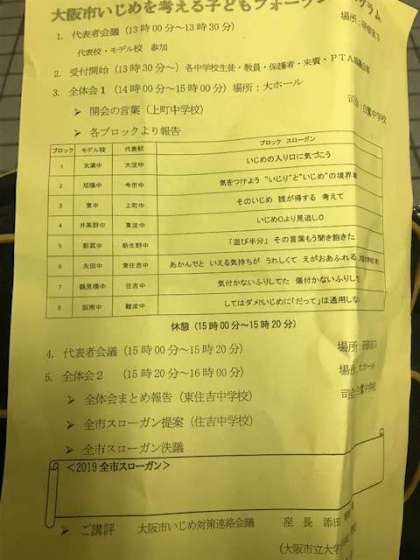 大阪市いじめを考える子どもフォーラム
プログラム
1. 代表者会議（13時00分～13時30分）
場所：
代表校・モデル校 参加
2. 受付開始（13時30分～）各中学校生徒・教員・保護者・来賓・PTA
3. 全体会1（14時00分～15時00分）場所：大ホール
司会：
➢ 開会の言葉（上町中学校）
➢ 各ブロックより報告
ブロック モデル校 代表校 ブロック スローガン
1 天満中 大淀中 いじめの入り口に気づこう
2 旭陽中 今市中 気をつけよう “いじり”と“いじめ”の境界
3 東中 上町中 そのいじめ 誰が得する 考えて
4 井高野中 東淀中 いじめ0より見逃し0
5 新巽中 新生野中 「遊び半分」 その言葉もう聞き飽きた
6 矢田中 東住吉中 あかんでと いえる気持ちが うれしくて えがおあふれる
7 鶴見橋中 住吉中 気付かないふりしてた 傷付かないふりした
8 阪南中 難波中 してはダメ!いじめに「だって」は通用しな
休憩（15時00分～15時20分）
4. 代表者会議（15時00分～15時20分）
場所：
5. 全体会2 （15時20分～16時00分）
場所：大ホール
司会：
➢ 全体会まとめ報告（東住吉中学校）
➢ 全市スローガン提案（住吉中学校）
➢ 全市スローガン決議
＜2019 全市スローガン＞
➢ ご講評 大阪市いじめ対策連絡会議 座 長 添田
（大阪市立大学